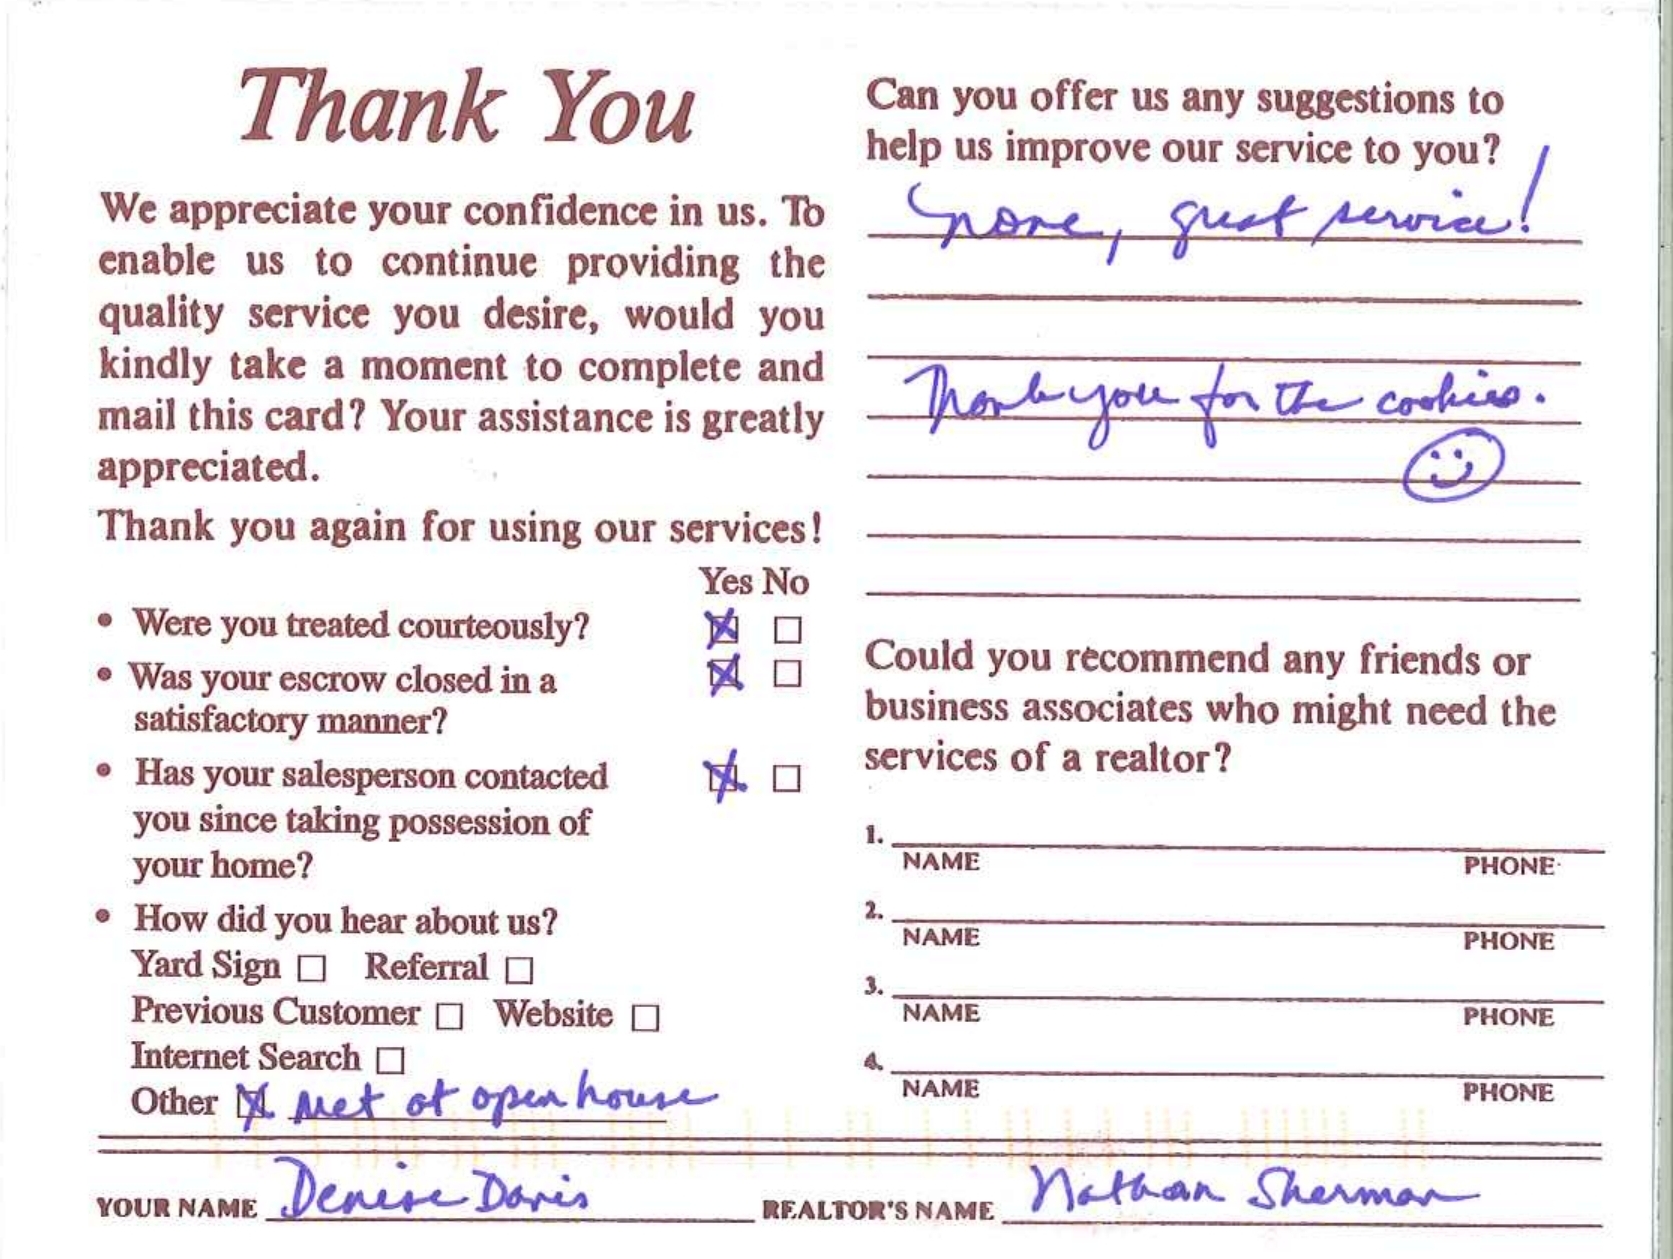 Thank You
We appreciate your confidence in us. To
enable us to continue providing the
quality service you desire, would you
kindly take a moment to complete and
mail this card? Your assistance is greatly
appreciated.
Thank you again for using our services!
Yes No
• Were you treated courteously?
• Was your escrow closed in a
satisfactory manner?
• Has your salesperson contacted
you since taking possession of
your home?
• How did you hear about us?
Yard Sign Referral
Previous Customer Website
Internet Search
Other Met at open house
Can you offer us any suggestions to
help us improve our service to you?
none, great service!
Thank you for the cookies.
Could you recommend any friends or
business associates who might need the
services of a realtor?
1.
NAME PHONE
2.
NAME PHONE
3.
NAME PHONE
4.
NAME PHONE
YOUR NAME Denise Davis REALTOR'S NAME Nathan Sherman